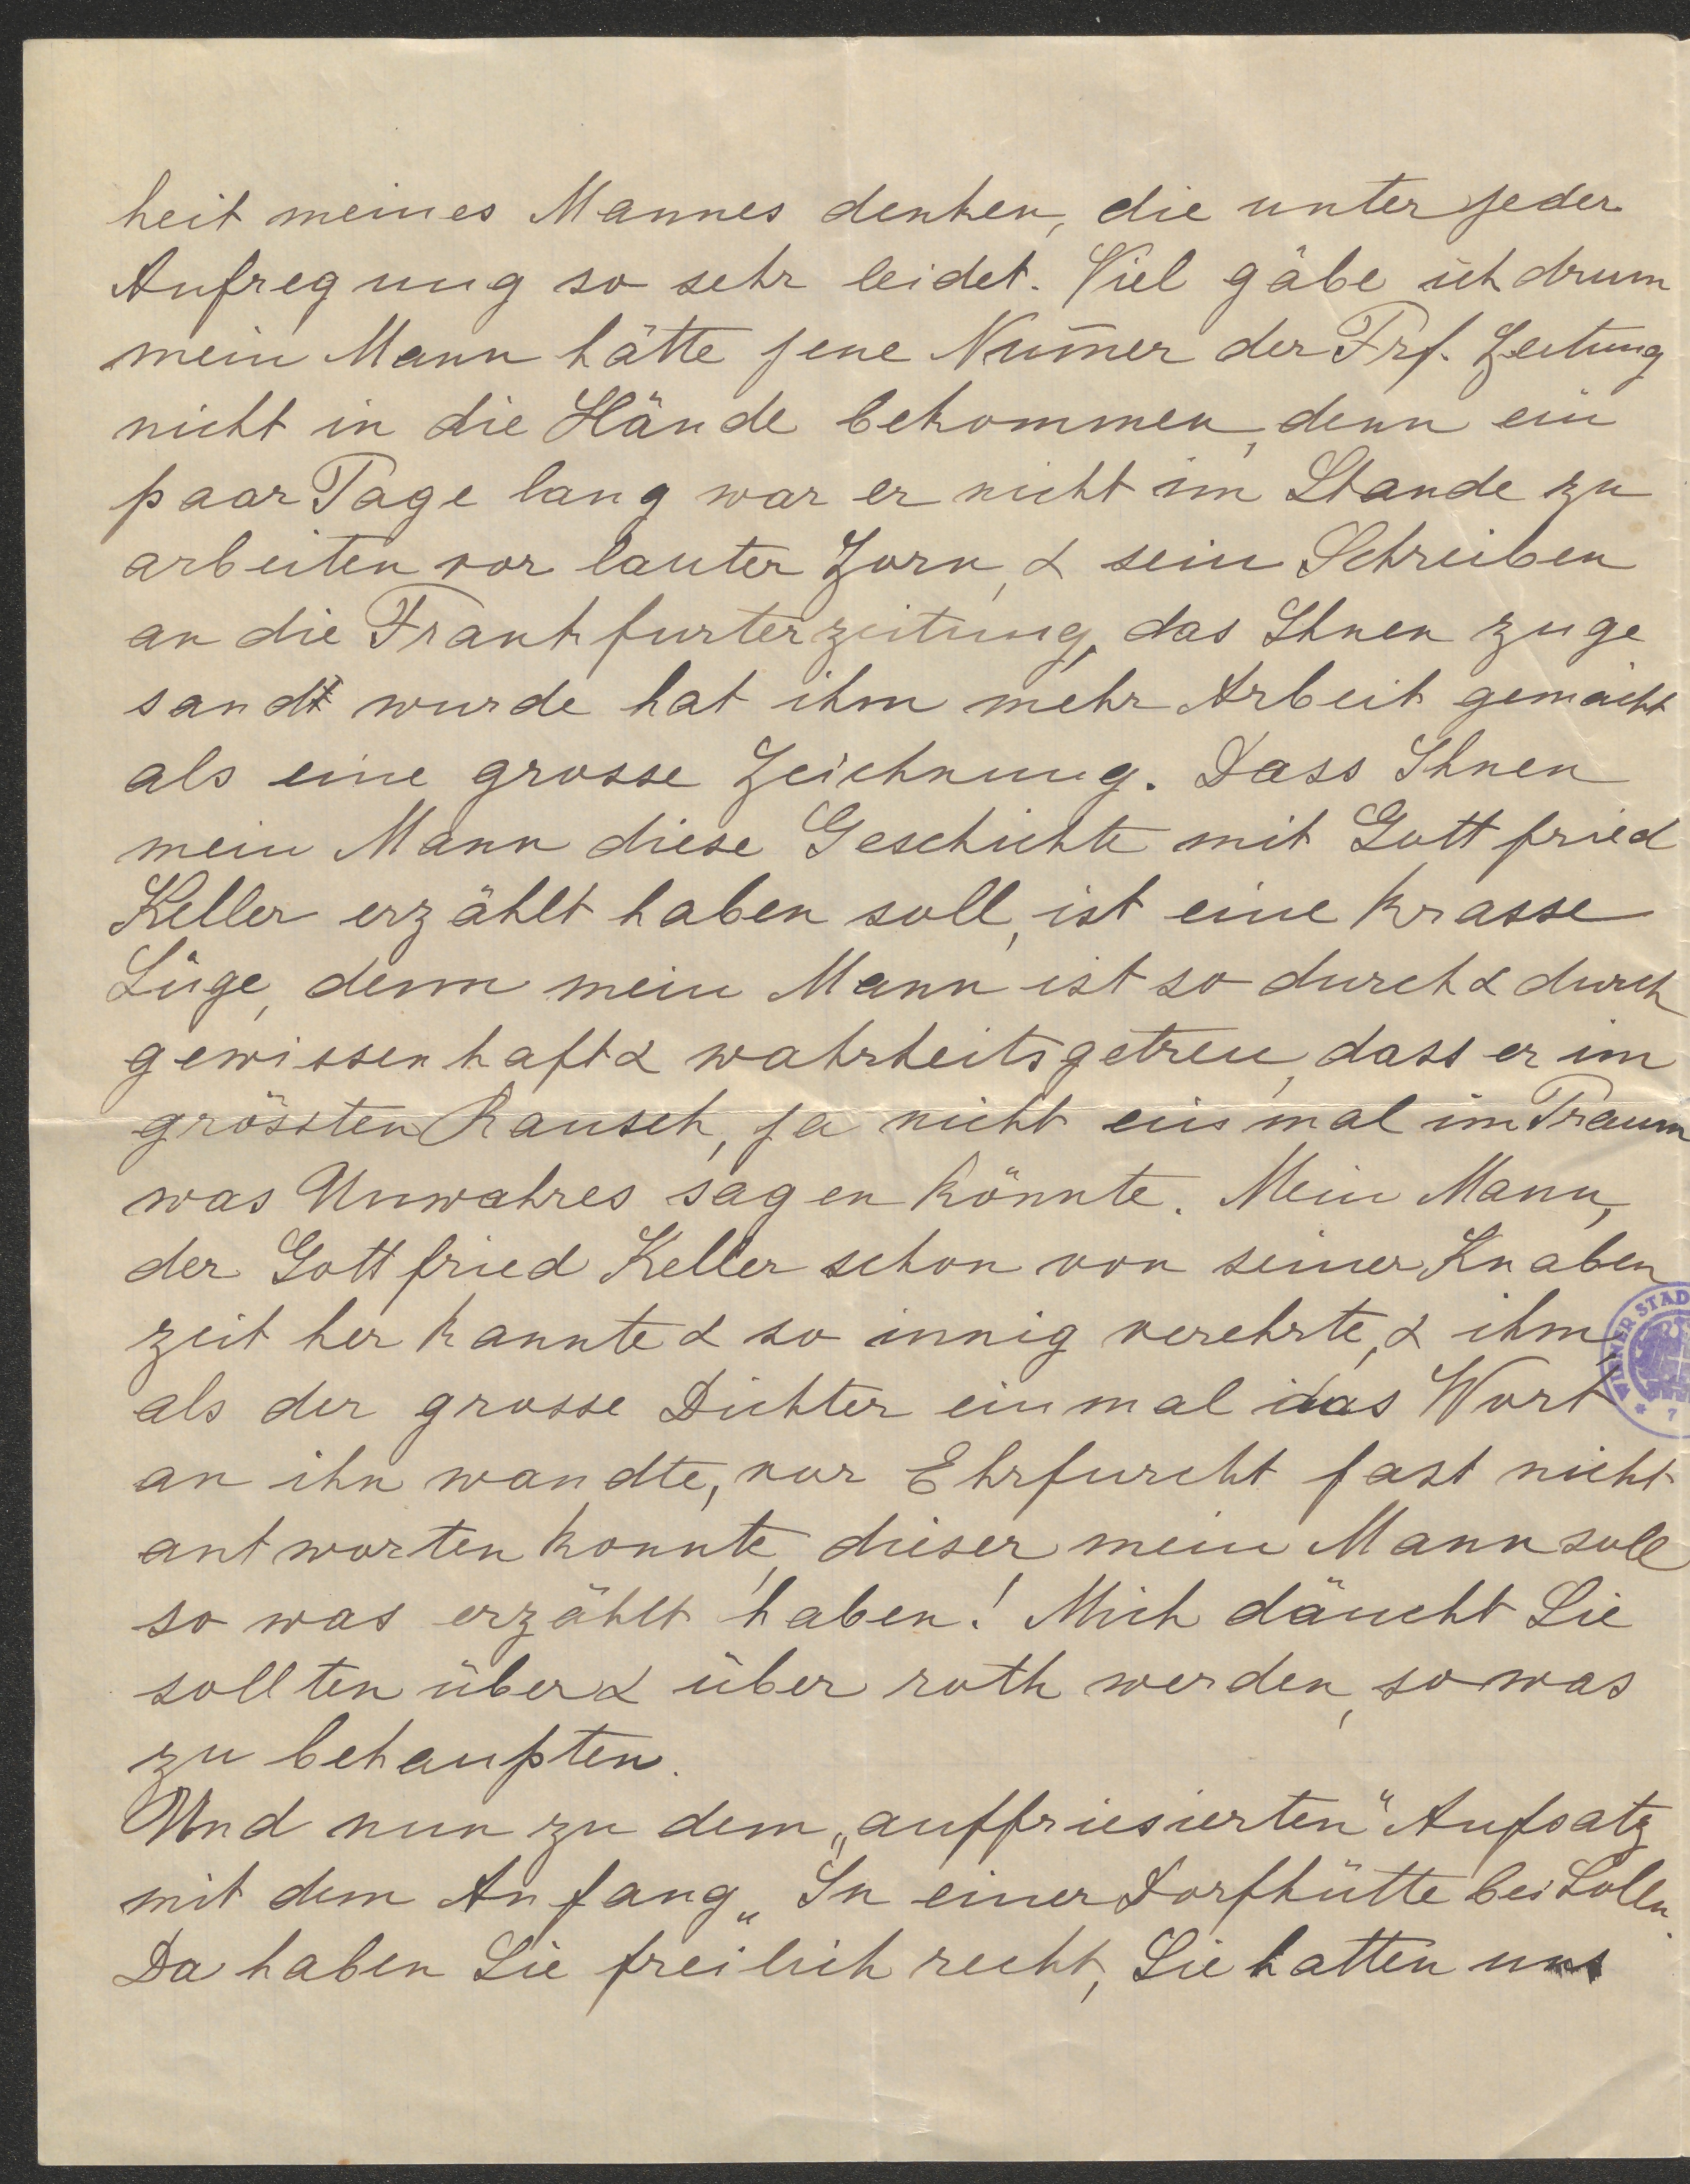 heit meines Mannes denken, die unter jeder
Aufregung so sehr leidet. Viel gäbe ich drum
mein Mann hätte jene Num̄er der Frf. Zeitung
nicht in die Hände bekommen, denn ein
paar Tage lang war er nicht im Stande zu
arbeiten vor lauter Zorn, & sein Schreiben
an die Frankfurterzeitung, das Ihnen zuge
sandt wurde hat ihm mehr Arbeit gemacht
als eine grosse Zeichnung. Dass Ihnen
mein Mann diese Geschichte mit Gottfried
Keller erzählt haben soll, ist eine krasse
Lüge, denn mein Mann ist so durch & durch
gewissenhaft & wahrheitsgetreu, dass er im
grössten Rausch, ja nicht einmal im Traum
was Unwahres sagen könnte. Mein Mann,
der Gottfried Keller schon von seiner Knaben
zeit her kannte & so innig verehrte, & ihm,
als der grosse Dichter einmal das Wort
an ihn wandte, vor Ehrfurcht fast nicht
antworten konnte, dieser, mein Mann soll
so was erzählt haben! Mich däucht Sie
sollten über & über roth werden, so was
zu behaupten.
Und nun zu dem „auffriesierten" Aufsatz
mit dem Anfang „In einer Dorfhütte bei Solln"
Da haben Sie freilich recht, Sie hatten uns
WIENER STAD
* 7